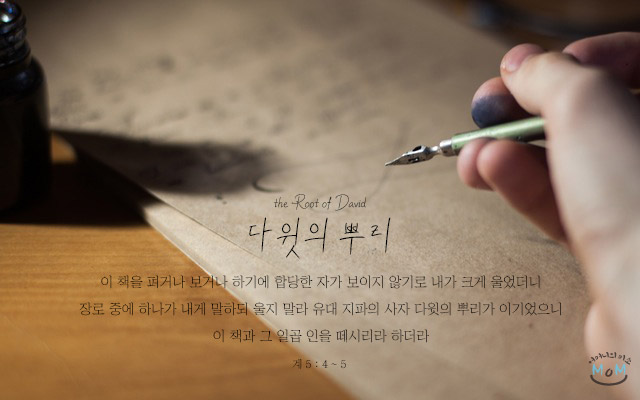 the Root of David
다윗의 뿌리
이 책을 펴거나 보거나 하기에 합당한 자가 보이지 않기로 내가 크게 울었더니
장로 중에 하나가 내게 말하되 울지 말라 유대 지파의 사자 다윗의 뿌리가 이기었으니
이 책과 그 일곱 인을 떼시리라 하더라
계 5 : 4 ~ 5
MOM